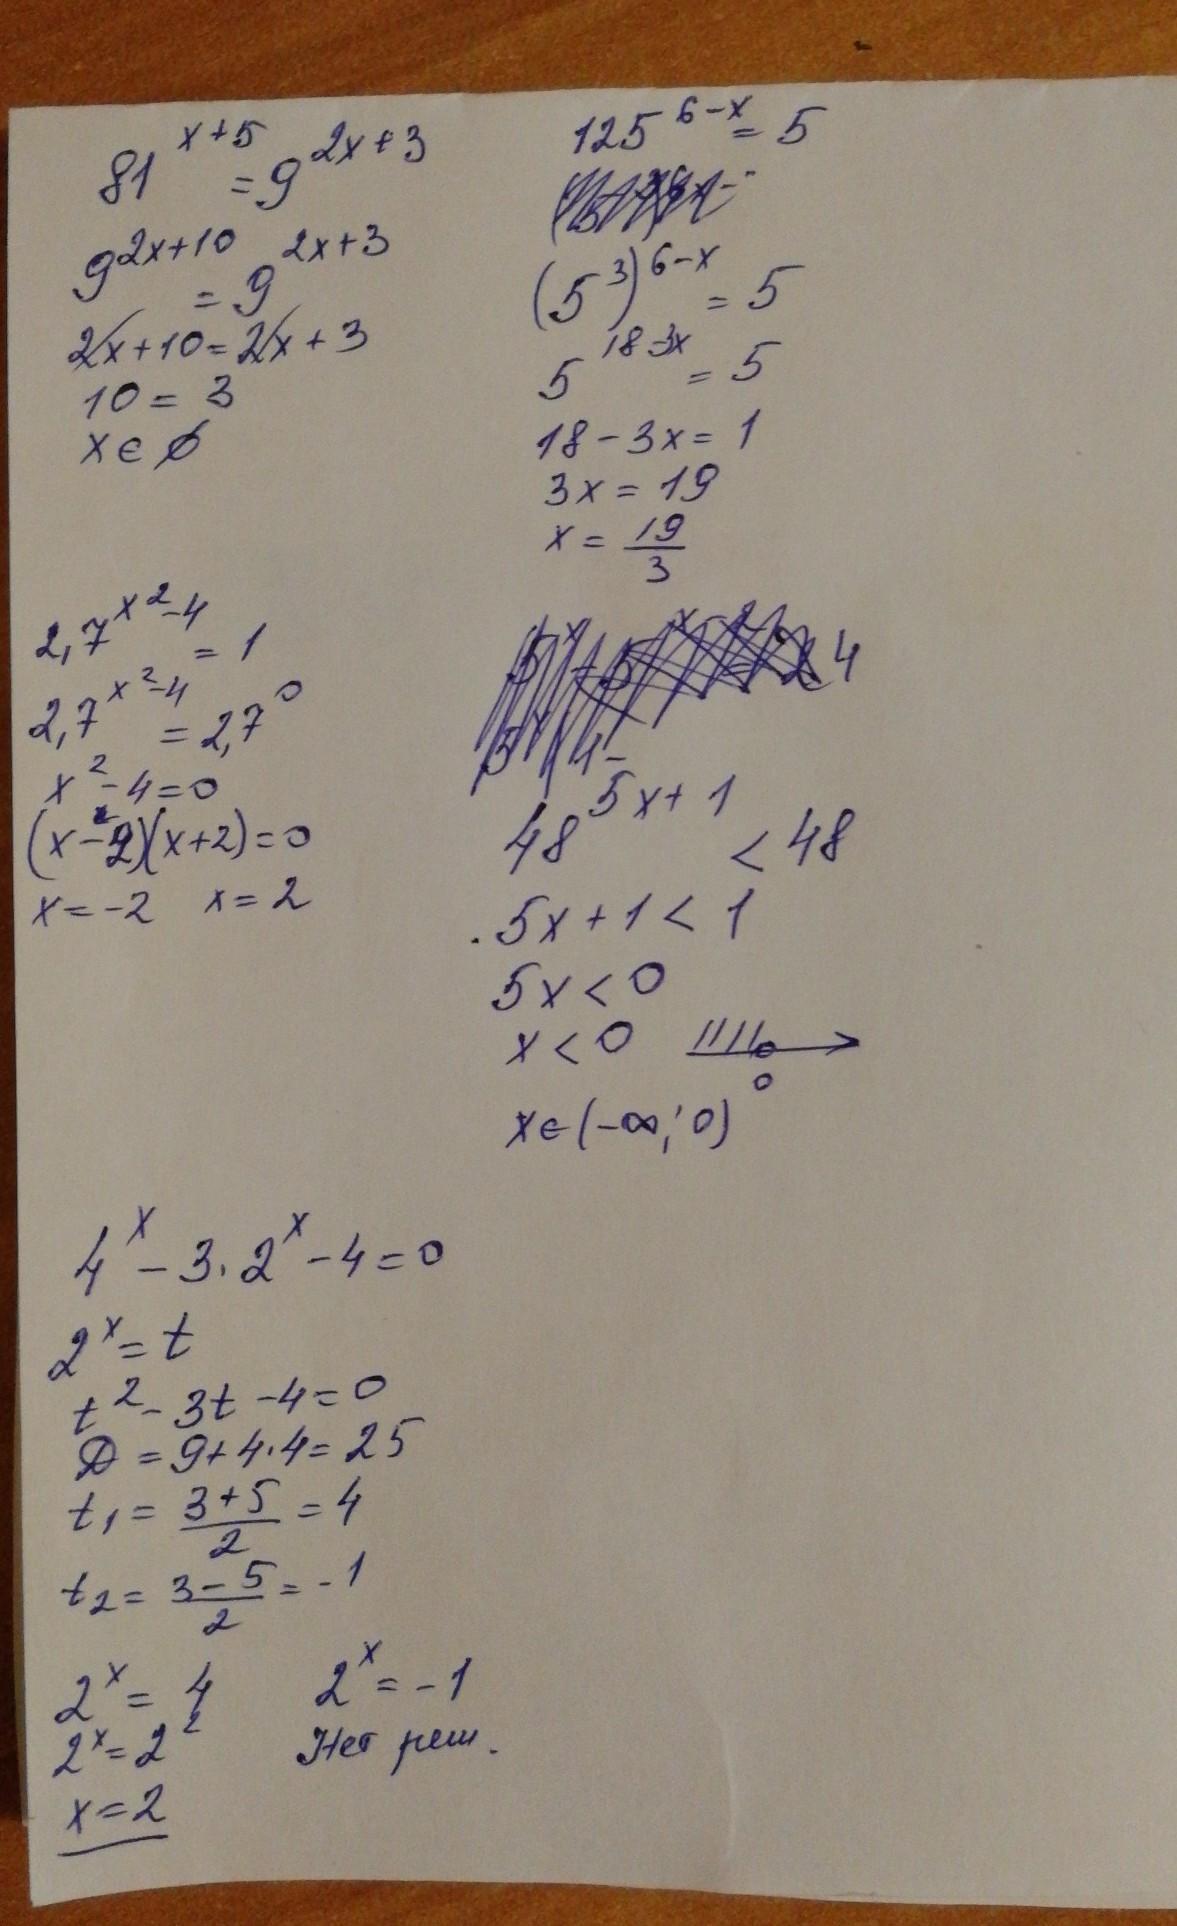 81^(x+5) = 9^(2x+3)
9^(2x+10) = 9^(2x+3)
2x+10 = 2x+3
10 = 3
x ∈ ∅
125^(6-x) = 5
(5^3)^(6-x) = 5
5^(18-3x) = 5
18 - 3x = 1
3x = 19
x = 19/3
2,7^(x^2-4) = 1
2,7^(x^2-4) = 2,7^0
x^2 - 4 = 0
(x-2)(x+2) = 0
x = -2 x = 2
48^(5x+1) < 48
5x + 1 < 1
5x < 0
x < 0
0
x ∈ (-∞; 0)
4^x - 3 · 2^x - 4 = 0
2^x = t
t^2 - 3t - 4 = 0
D = 9 + 4·4 = 25
t_1 = (3+5)/2 = 4
t_2 = (3-5)/2 = -1
2^x = 4
2^x = 2^2
x = 2
2^x = -1
Нет реш.